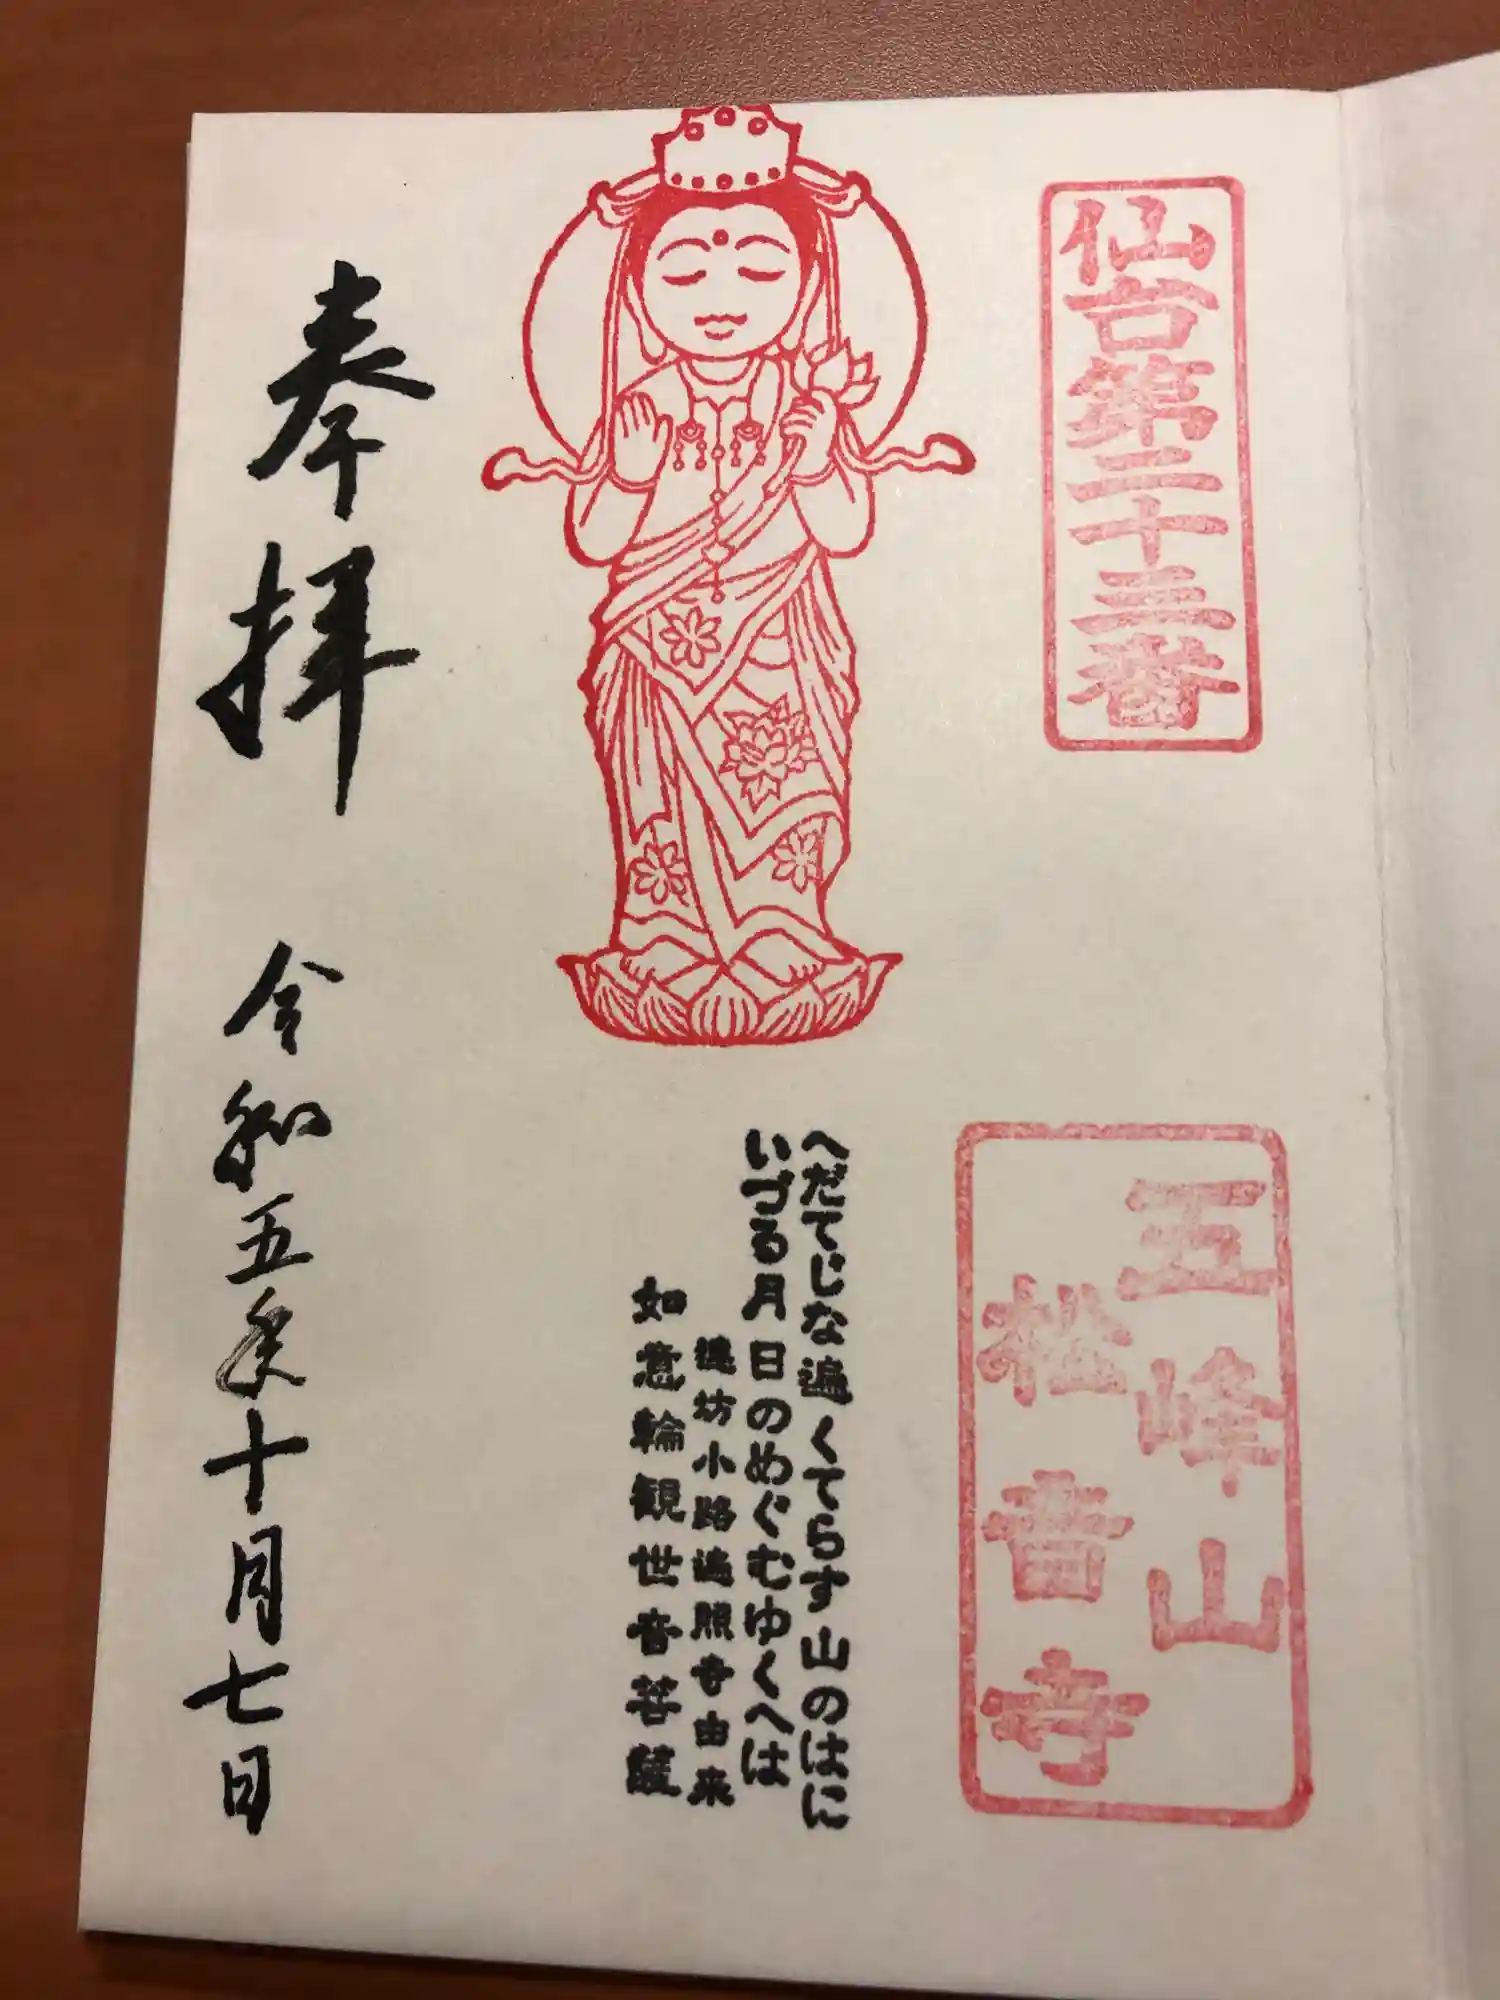 仙台第二十三番
五峰山
松音寺
へだてじな遍くてらす山のはに
いづる月日のめぐむゆくへは
連坊小路遍照寺由来
如意輪観世音菩薩
奉拝
令和五年十月七日